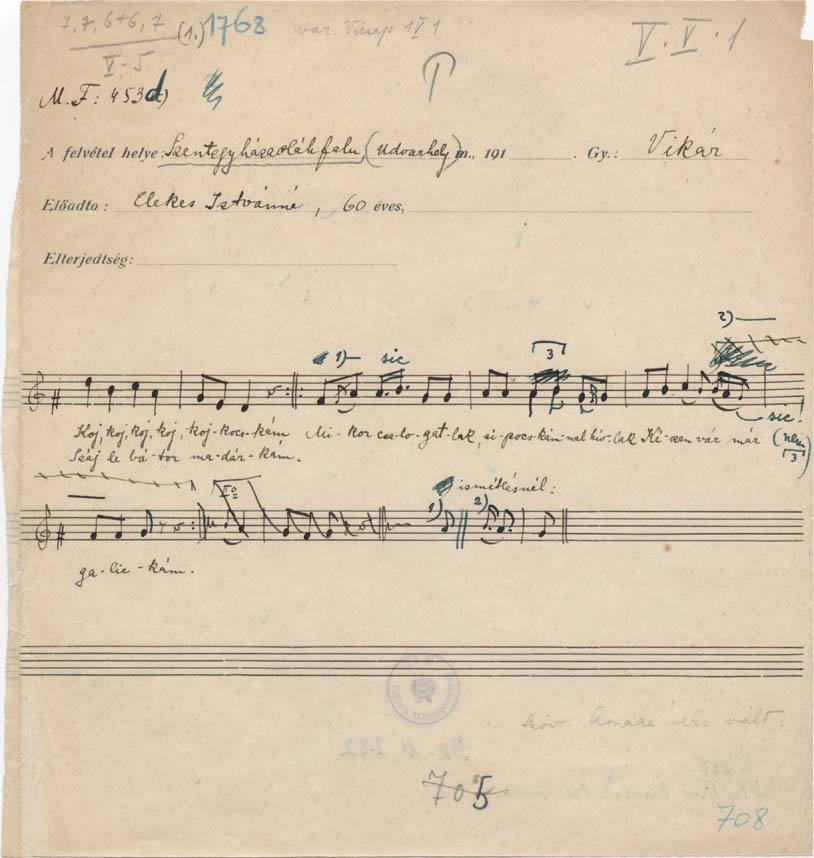 7, 7, 6+6, 7 (1.) 1768 var. V. 1
V-5
V. V. 1
M. F: 453d)
A felvétel helye: Szentegyházasoláhfalu, (Udvarhely) m., 191 . Gy.: Vikár
Előadta: Elekes Istvánné, 60 éves,
Elterjedtség:
2)
1) sic 3
sic!
Koj, koj, koj, koj, koj-kocs-kám Mi-kor csa-lo-gat-lak, si-pocs-kám-mal hío-lak Ké-szen vár már (nem 3)
Száj le bá-tor ma-dár-kám.
II°
ismétlésnél:
1) 2)
ga-lic-kám.
szöv. Amade-vers vált.
705
708